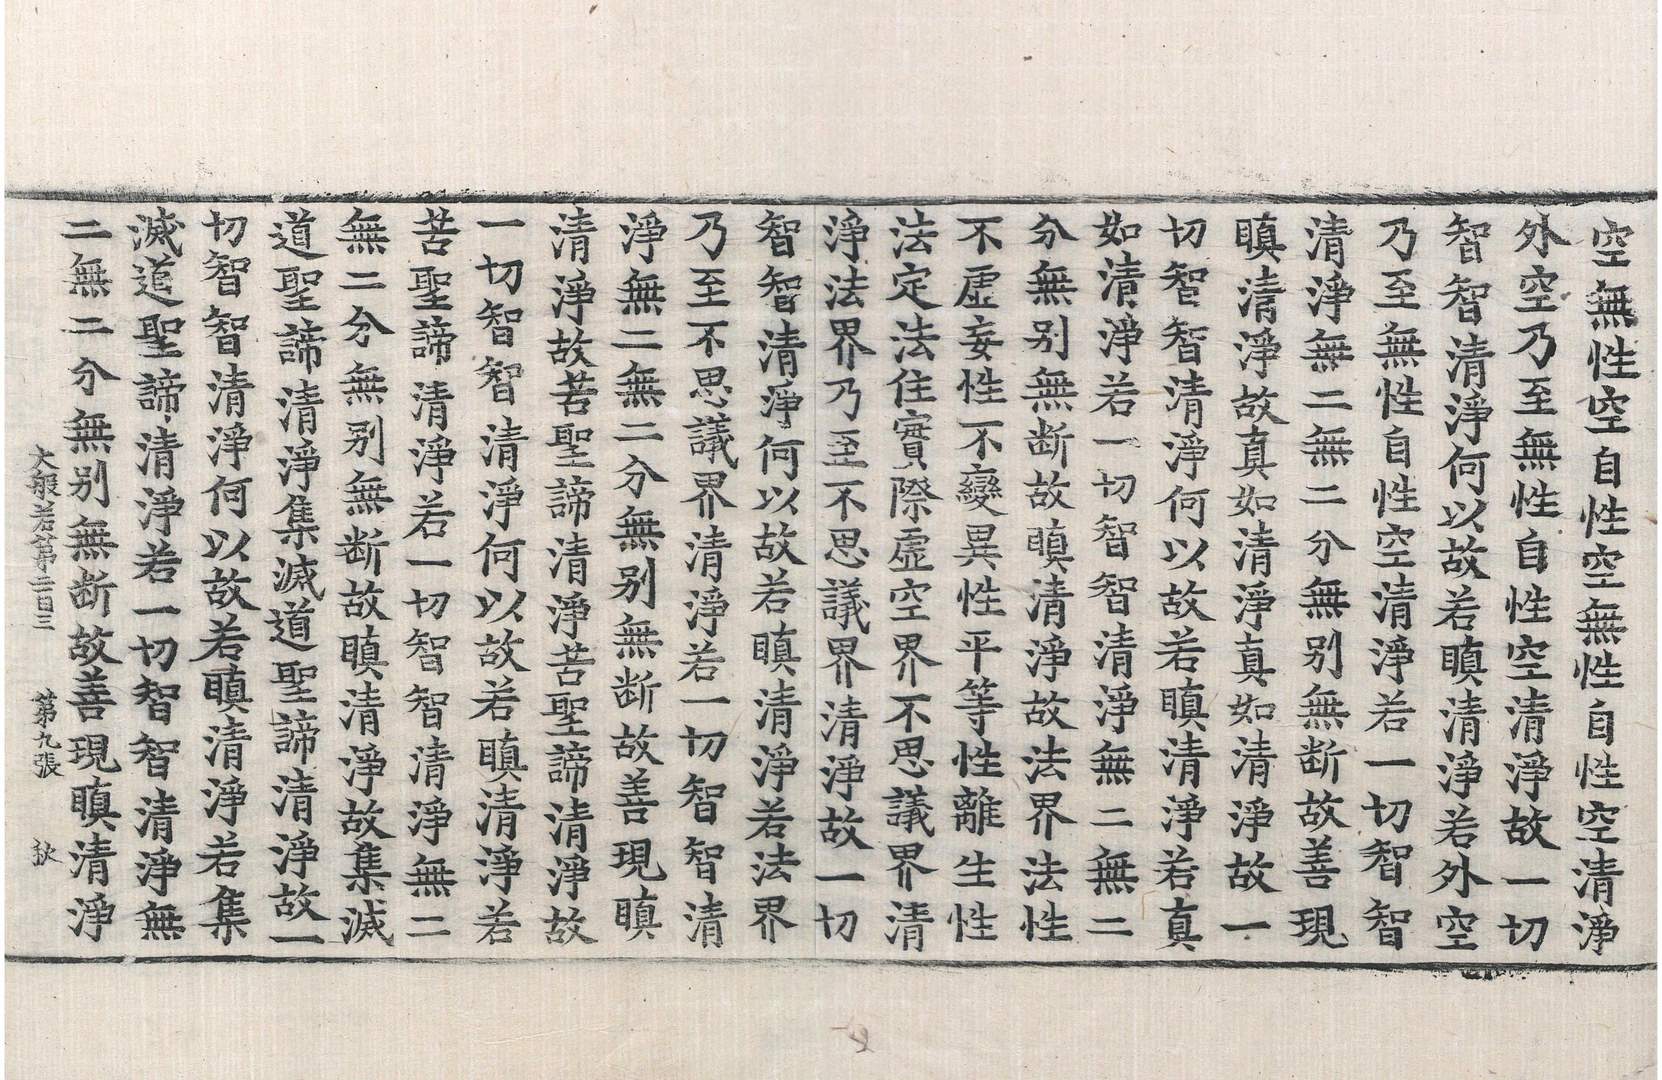 空無性空自性空無性自性空清淨
外空乃至無性自性空清淨故一切
智智清淨何以故若瞋清淨若外空
乃至無性自性空清淨若一切智智
清淨無二無二分無别無断故善現
瞋清淨故真如清淨真如清淨故一
切智智清淨何以故若瞋清淨若真
如清淨若一切智智清淨無二無二
分無别無断故瞋清淨故法界法性
不虛妄性不變異性平等性離生性
法定法住實際虛空界不思議界清
淨法界乃至不思議界清淨故一切
智智清淨何以故若瞋清淨若法界
乃至不思議界清淨若一切智智清
淨無二無二分無别無断故善現瞋
清淨故苦聖諦清淨苦聖諦清淨故
一切智智清淨何以故若瞋清淨若
苦聖諦清淨若一切智智清淨無二
無二分無别無断故瞋清淨故集滅
道聖諦清淨集滅道聖諦清淨故一
切智智清淨何以故若瞋清淨若集
滅道聖諦清淨若一切智智清淨無
二無二分無别無断故善現瞋清淨
大般若第二百三 第九張 秋